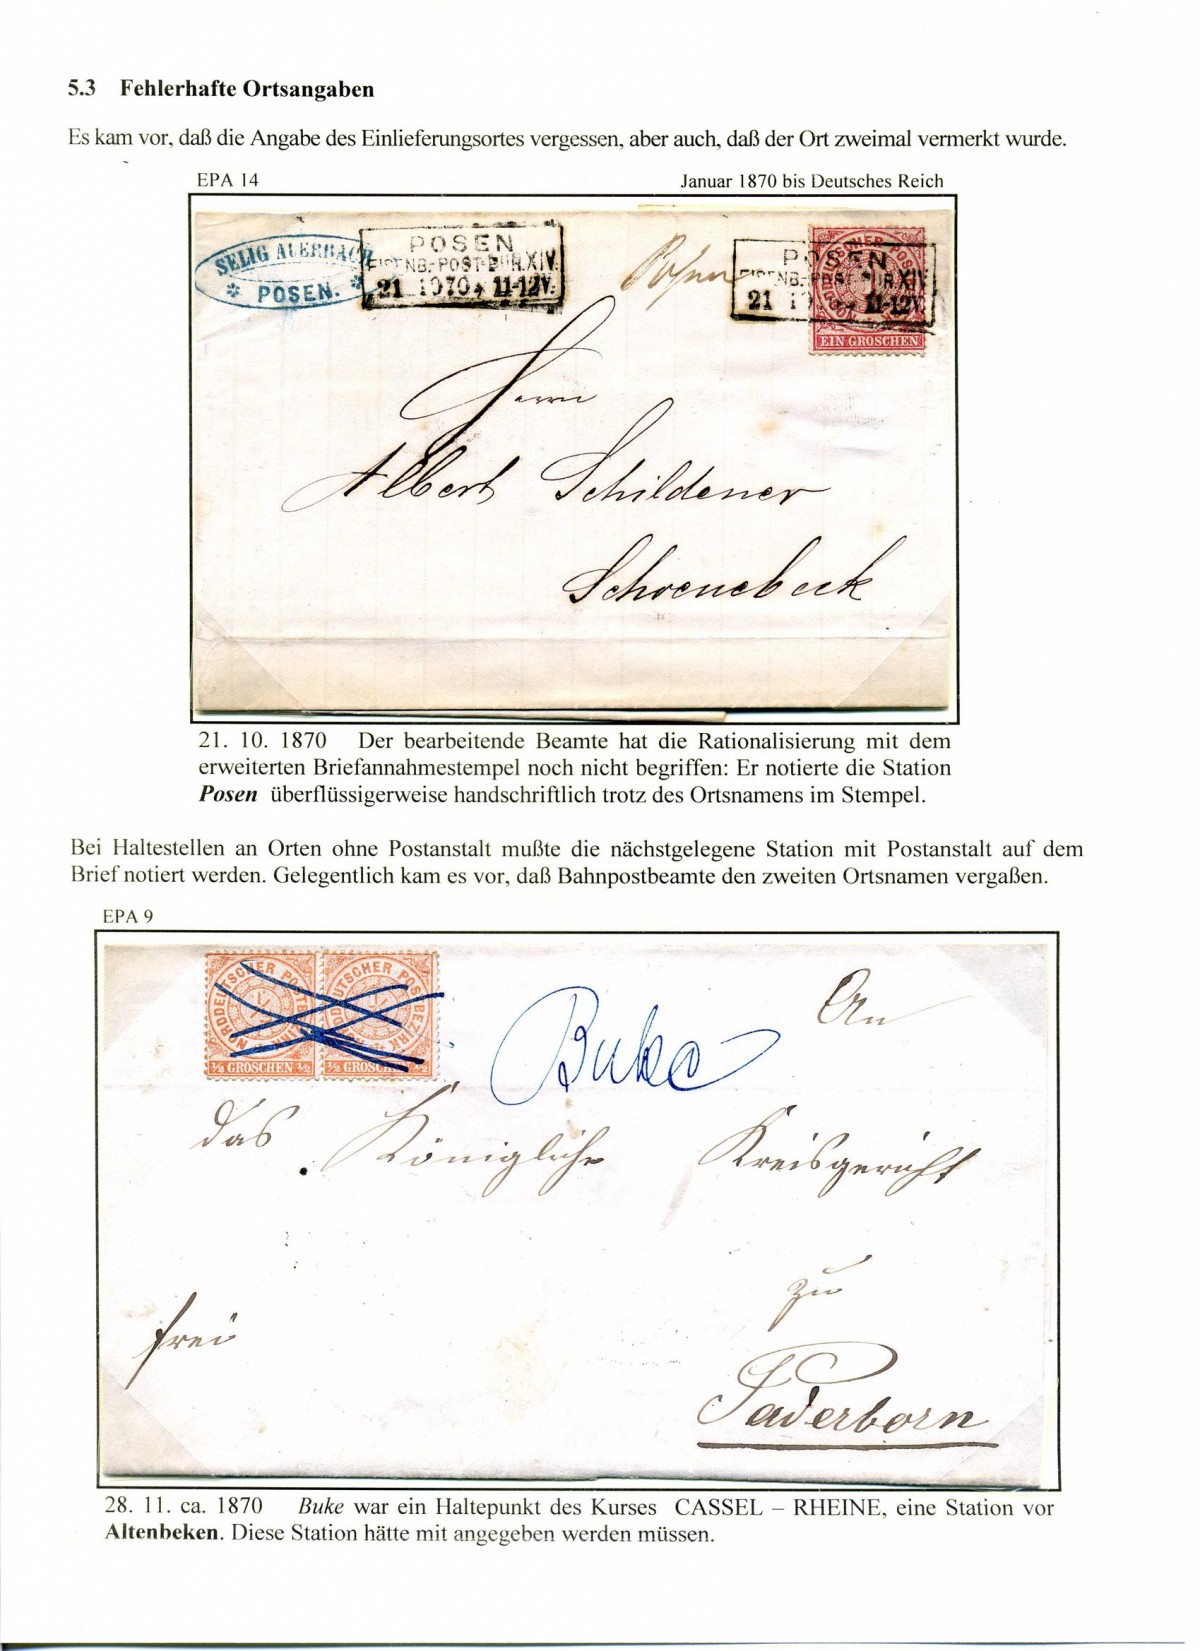 5.3 Fehlerhafte Ortsangaben
Es kam vor, daß die Angabe des Einlieferungsortes vergessen, aber auch, daß der Ort zweimal vermerkt wurde.
EPA 14 Januar 1870 bis Deutsches Reich
SELIG AUERBACH
* POSEN. *
POSEN
EISENB.-POST-BUR.XIV.
21 10 70 * 11-12V.
Posen
POSEN
EISENB.-POST-BUR.XIV.
21 10 * 11-12V.
NORDDEUTSCHER POSTBEZIRK
EIN GROSCHEN
Herrn
Albert Schildener
Schoenebeck
21. 10. 1870 Der bearbeitende Beamte hat die Rationalisierung mit dem
erweiterten Briefannahmestempel noch nicht begriffen: Er notierte die Station
Posen überflüssigerweise handschriftlich trotz des Ortsnamens im Stempel.
Bei Haltestellen an Orten ohne Postanstalt mußte die nächstgelegene Station mit Postanstalt auf dem
Brief notiert werden. Gelegentlich kam es vor, daß Bahnpostbeamte den zweiten Ortsnamen vergaßen.
EPA 9
NORDDEUTSCHER POSTBEZIRK
½ GROSCHEN ½
NORDDEUTSCHER POSTBEZIRK
½ GROSCHEN ½
Buke
An
das Königliche Kreisgericht
zu
frei
Paderborn
28. 11. ca. 1870 Buke war ein Haltepunkt des Kurses CASSEL – RHEINE, eine Station vor
Altenbeken. Diese Station hätte mit angegeben werden müssen.